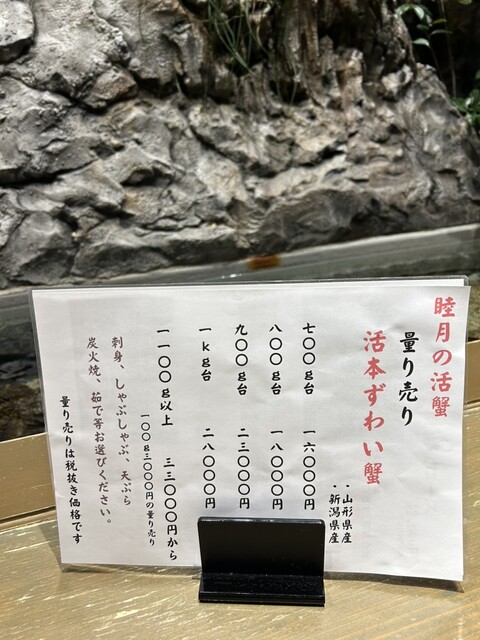 睦月の活蟹
量り売り
活本ずわい蟹
・山形県産
・新潟県産
七〇〇g台 一六〇〇〇円
八〇〇g台 一八〇〇〇円
九〇〇g台 二三〇〇〇円
一kg台 二八〇〇〇円
一一〇〇g以上 三三〇〇〇円から
一〇〇g三〇〇〇円の量り売り
刺身、しゃぶしゃぶ、天ぷら
炭火焼、茹で等お選びください。
量り売りは税抜き価格です